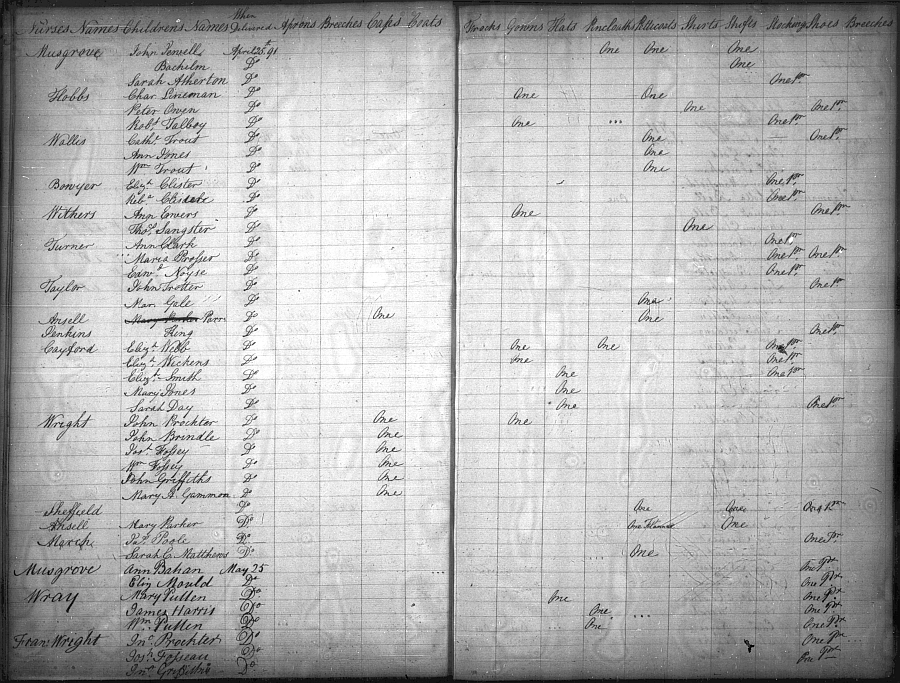 Nurses Names Childrens Names When Delivered Aprons Breeches Craps Coats Frocks Gowns Hats Pinclouths Petticoats Shirts Shifts Stockings Shoes Breeches
Musgrove John Powell April 25th 91 One One One
Bachilm Do One
Sarah Atherton Do One Pr
Hobbs Char. Lineman Do One One
Peter Owen Do One One Pr
Robt Talboy Do One One Pr
Wallis Cathe Trout Do One One Pr
Ann Jones Do One
Wm Trout Do One
Bowyer Elizh Clister Do One Pr
Reba Do One Pr
Withers Ann Do One One Pr
Thos Sangster Do One
Turner Ann Clark Do One Pr
Maria Prosser Do One Pr One Pr
Edwd Noyse Do One Pr
Taylor John Trotter Do One Pr
Mar. Gale Do One
Ansell Mary Parker Parr Do One One
Jenkins King Do One Pr
Cayford Elizh Webb Do One One One Pr
Elizh Wickens Do One One Pr
Elizh Smith Do One One Pr
Mary Jones Do One
Sarah Day Do One One Pr
Wright John Prockter Do One One
John Brindle Do One
Josh Fossey Do One
Wm Fossey Do One
John Griffiths Do One
Mary A. Gammon Do One
Sheffield Do One One One Pr
Ansell Mary Parker Do One Flannel One
March Jas Poole Do One Pr
Sarah C. Matthews Do One
Musgrove Ann Bahan May 25 One Pre
Eliz Mould Do One Pre
Wray Mary Pullen Do One One Pre
James Harris Do One One Pre
Wm Pullen Do One One Pre
Fran: Wright Jno Prockter Do One Pre
Josh Do One Pre
Jno Griffiths Do